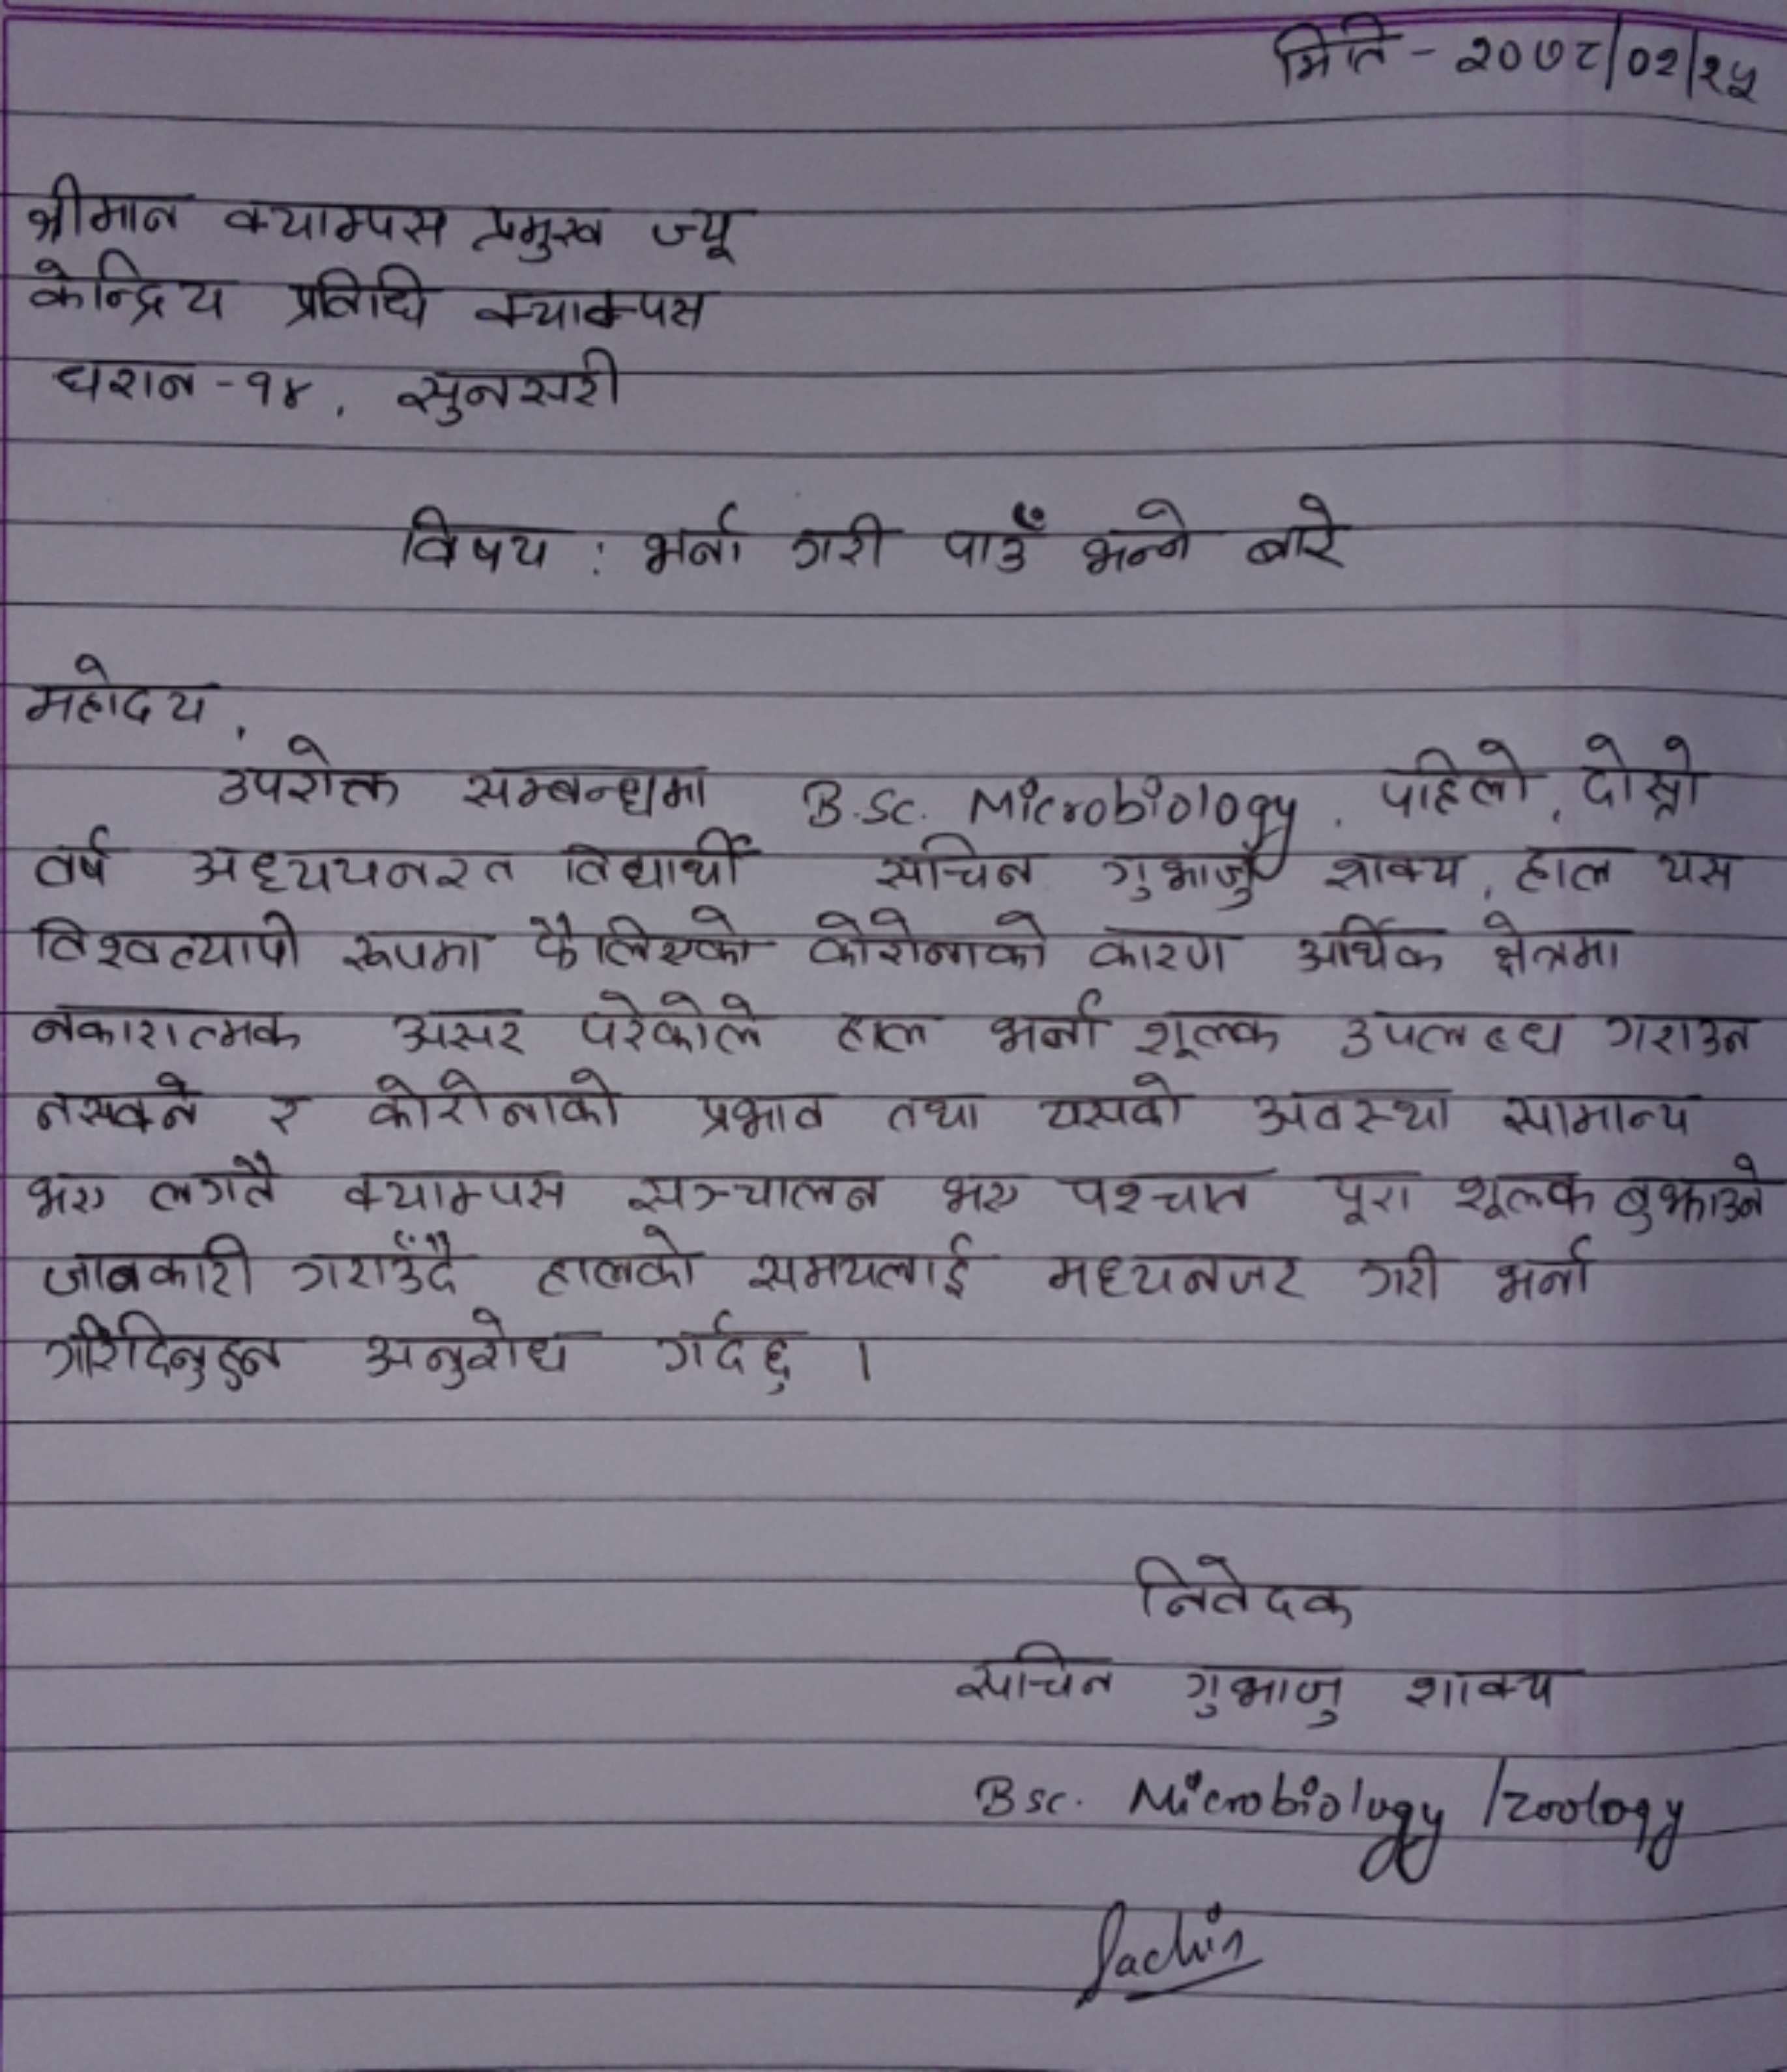 मिति - २०७८/०२/२५
श्रीमान क्याम्पस प्रमुख ज्यू
केन्द्रिय प्रविधि क्याम्पस
धरान - १४, सुनसरी
विषय : भर्ना गरी पाउँ भन्ने बारे
महोदय,
उपरोक्त सम्बन्धमा B.Sc. Microbiology, पहिलो, दोस्रो
वर्ष अध्ययनरत विद्यार्थी सचिन गुभाजु शाक्य, हाल यस
विश्वव्यापी रूपमा फैलिएको कोरोनाको कारण आर्थिक क्षेत्रमा
नकारात्मक असर परेकोले हाल भर्ना शूल्क उपलब्ध गराउन
नसक्ने र कोरोनाको प्रभाव तथा यसको अवस्था सामान्य
भए लगतै क्याम्पस सञ्चालन भए पश्चात पूरा शूल्क बुझाउने
जानकारी गराउँदै हालको समयलाई मध्यनजर गरी भर्ना
गरिदिनुहुन अनुरोध गर्दछु ।
निवेदक
सचिन गुभाजु शाक्य
Bsc. Microbiology / Zoology
Sachin